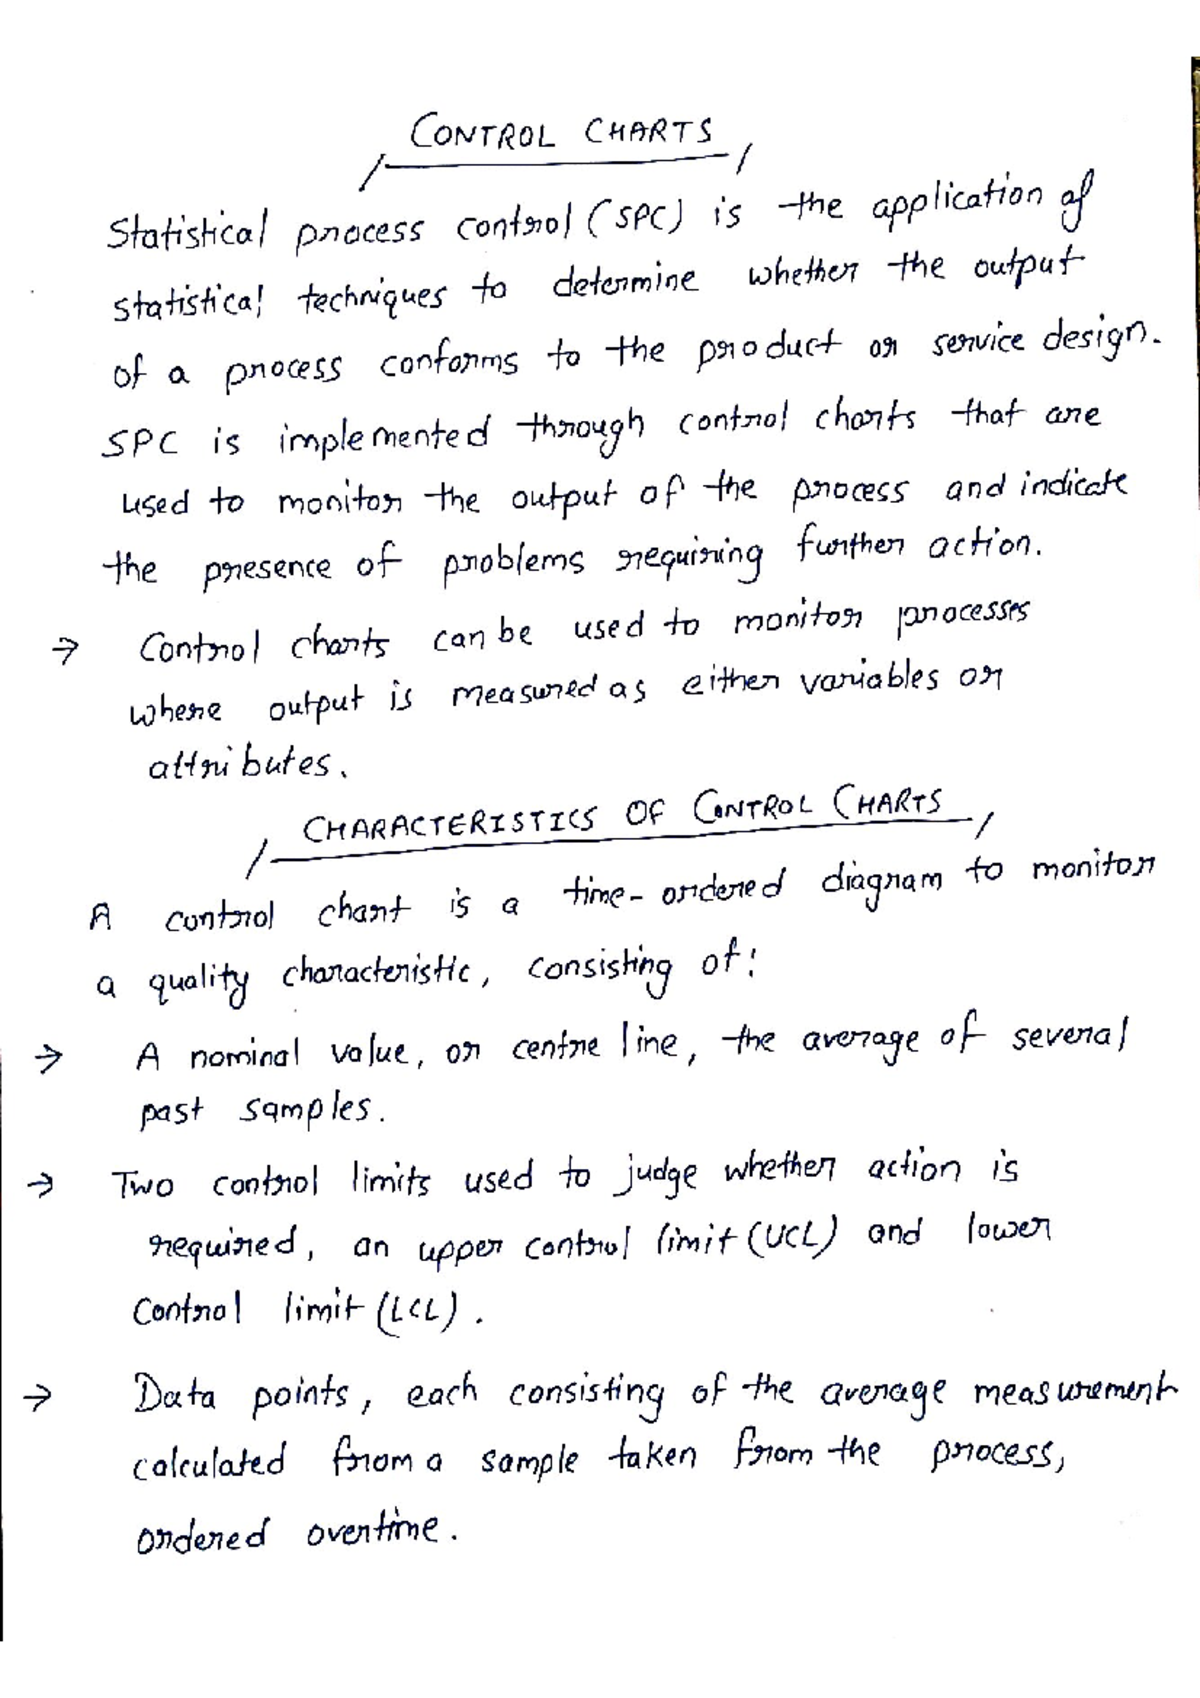 CONTROL CHARTS
Statistical process control (SPC) is the application of
statistical techniques to determine whether the output
of a process conforms to the product or service design.
SPC is implemented through control charts that are
used to monitor the output of the process and indicate
the presence of problems requiring further action.
→ Control charts can be used to monitor processes
where output is measured as either variables or
attributes.
CHARACTERISTICS OF CONTROL CHARTS
A control chart is a time-ordered diagram to monitor
a quality characteristic, consisting of:
→ A nominal value, or centre line, the average of several
past samples.
→ Two control limits used to judge whether action is
required, an upper control limit (UCL) and lower
Control limit (LCL).
→ Data points, each consisting of the average measurement
calculated from a sample taken from the process,
ordered overtime.